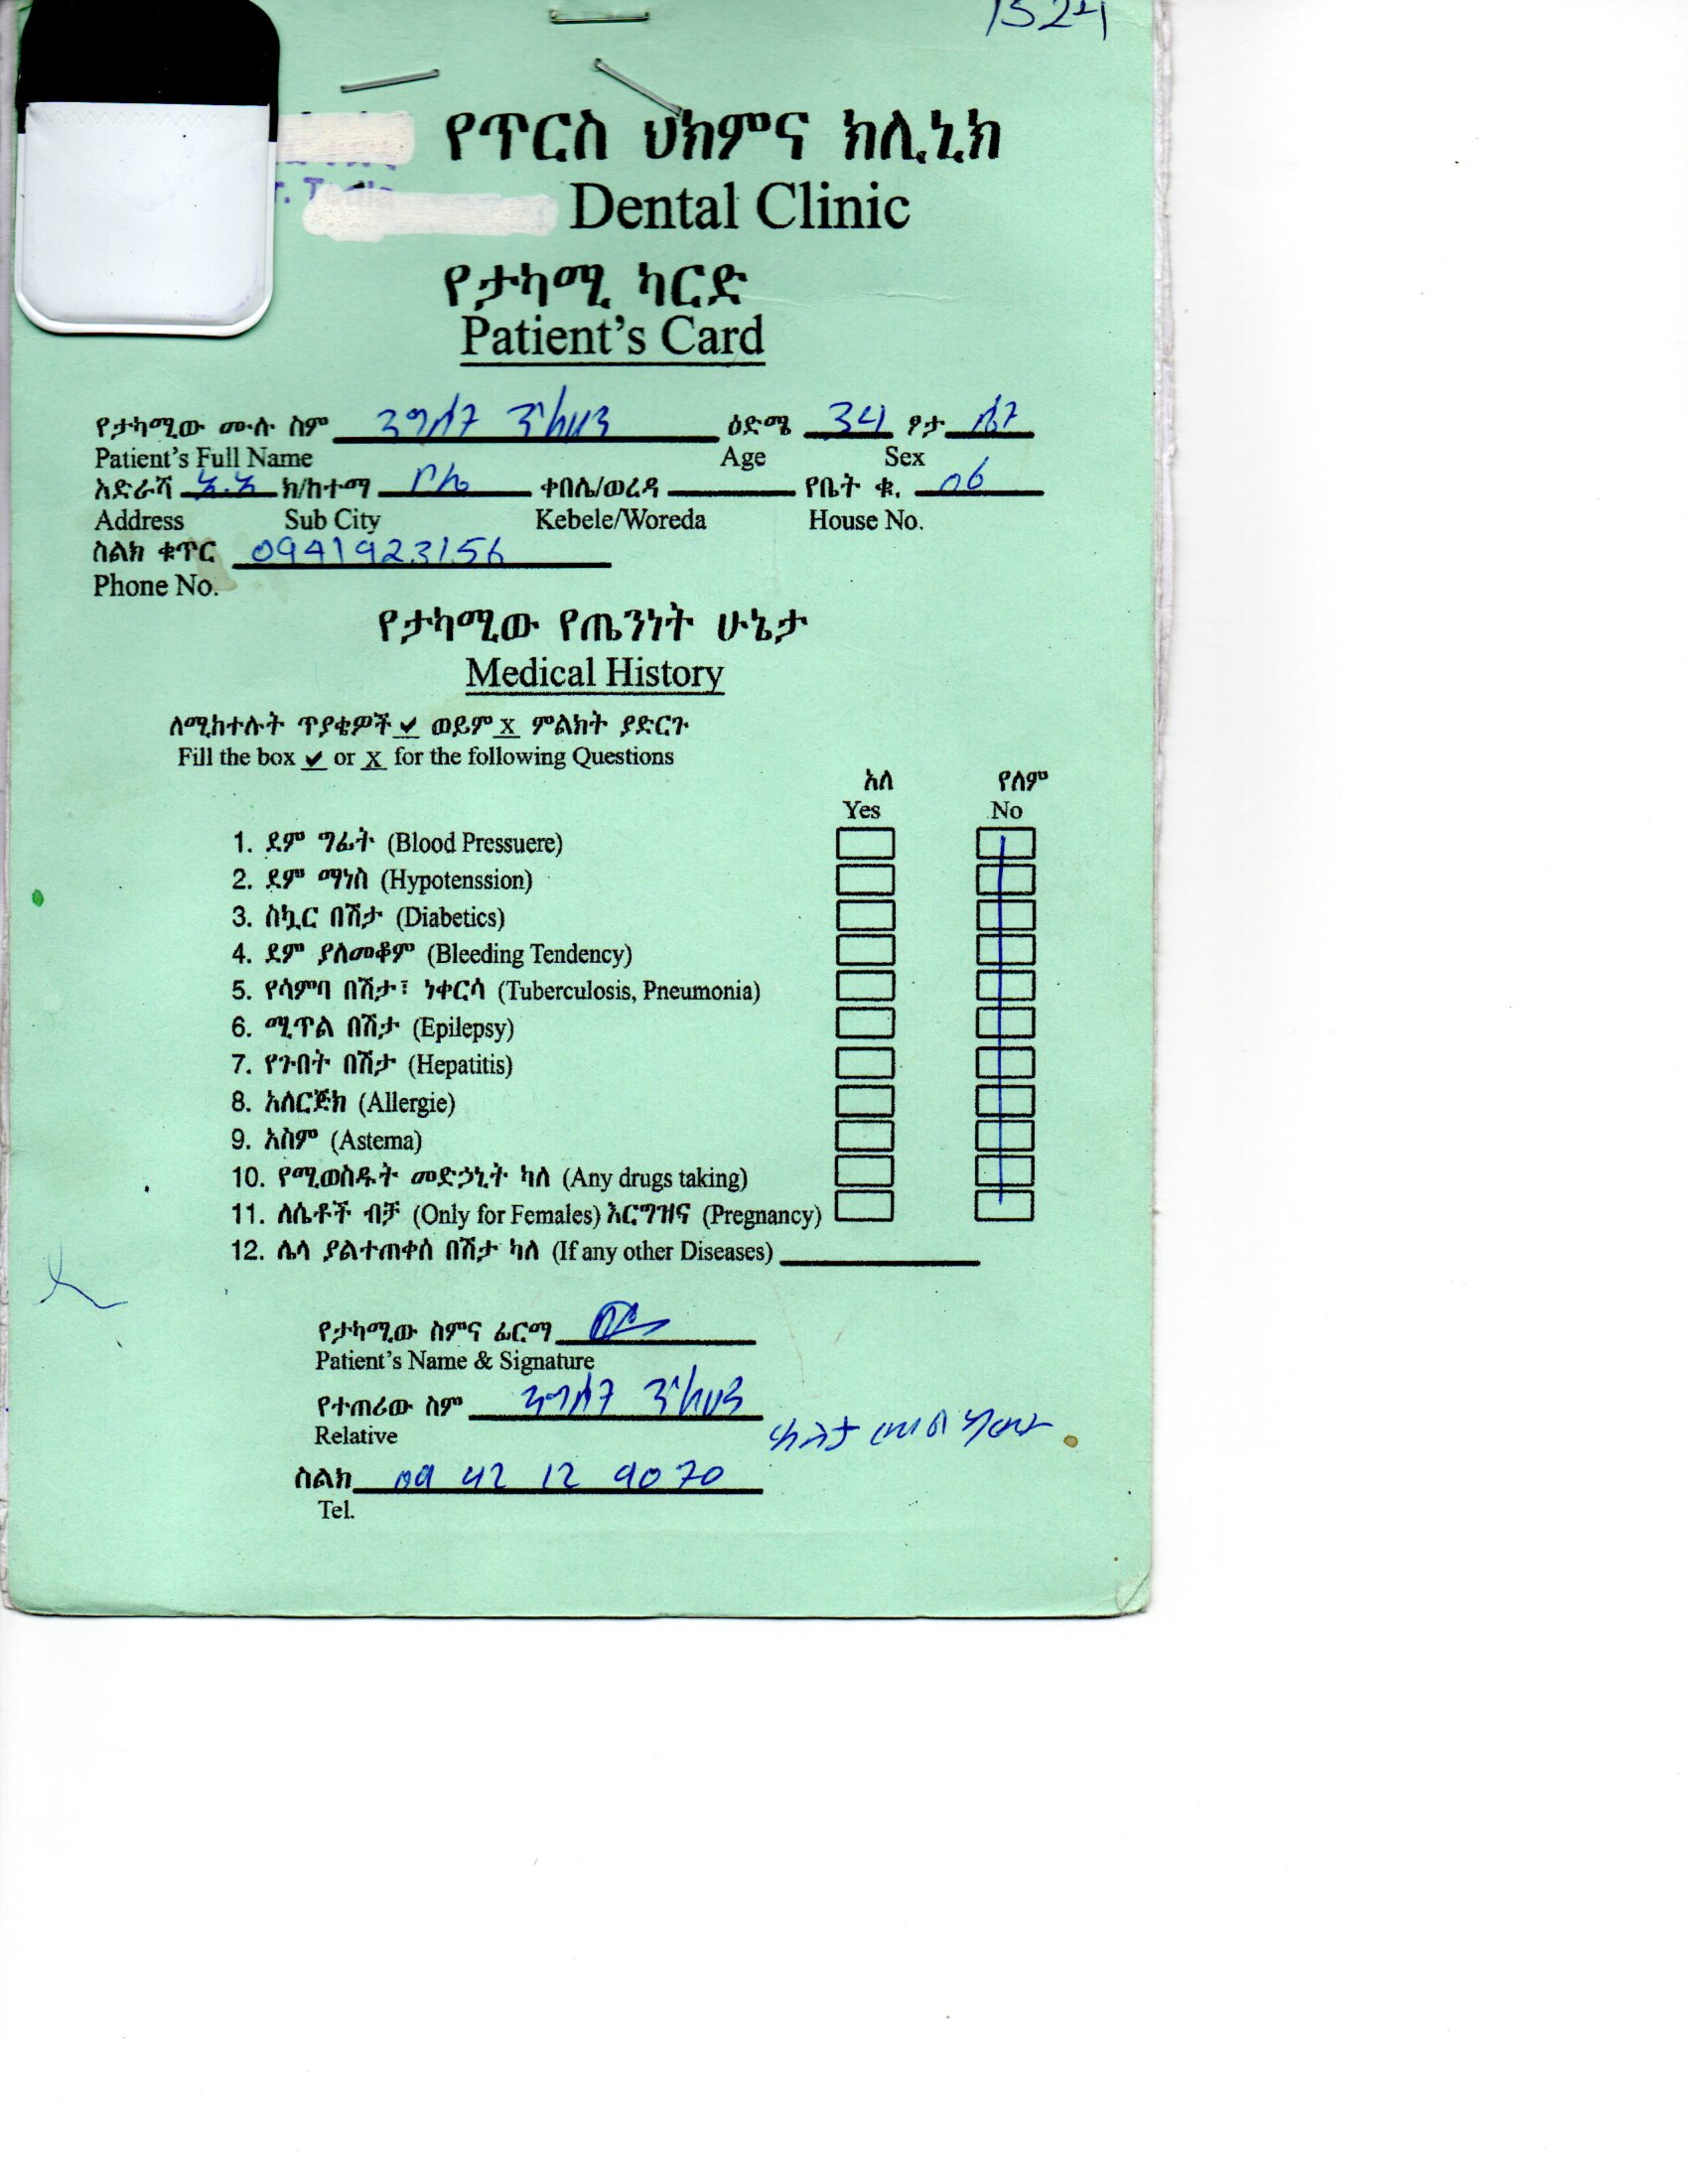 1324
የጥርስ ህክምና ክሊኒክ
Dental Clinic
የታካሚ ካርድ
Patient's Card
የታካሚው ሙሉ ስም ዕድሜ 34 ፆታ ሴት
Patient's Full Name Age Sex
አድራሻ አ.አ ክ/ከተማ ቦሌ ቀበሌ/ወረዳ የቤት ቁ. 06
Address Sub City Kebele/Woreda House No.
ስልክ ቁጥር 0941923156
Phone No.
የታካሚው የጤንነት ሁኔታ
Medical History
ለሚከተሉት ጥያቄዎች ✔ ወይም x ምልክት ያድርጉ
Fill the box ✔ or x for the following Questions
አለ የለም
Yes No
1. ደም ግፊት (Blood Pressuere)
2. ደም ማነስ (Hypotenssion)
3. ስኳር በሽታ (Diabetics)
4. ደም ያለመቆም (Bleeding Tendency)
5. የሳምባ በሽታ፣ ነቀርሳ (Tuberculosis, Pneumonia)
6. ሚጥል በሽታ (Epilepsy)
7. የጉበት በሽታ (Hepatitis)
8. አለርጅክ (Allergie)
9. አስም (Astema)
10. የሚወስዱት መድኃኒት ካለ (Any drugs taking)
11. ለሴቶች ብቻ (Only for Females) እርግዝና (Pregnancy)
12. ሌላ ያልተጠቀሰ በሽታ ካለ (If any other Diseases)
የታካሚው ስምና ፊርማ
Patient's Name & Signature
የተጠሪው ስም
Relative
ስልክ 09 42 12 9070
Tel.